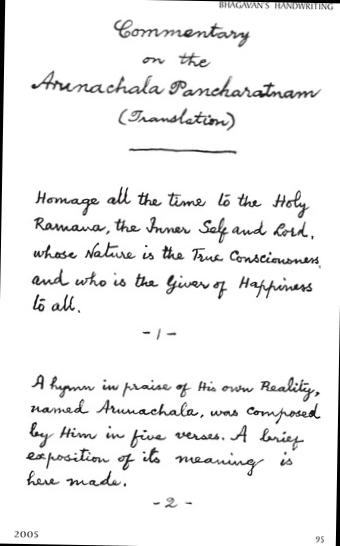 BHAGAVAN'S HANDWRITING
Commentary
on the
Arunachala Pancharatnam
(Translation)
Homage all the time to the Holy
Ramana, the Inner Self and Lord,
whose Nature is the True Consciousness,
and who is the Giver of Happiness
to all.
- 1 -
A hymn in praise of His own Reality,
named Arunachala, was composed
by Him in five verses. A brief
exposition of its meaning is
here made.
- 2 -
2005
95